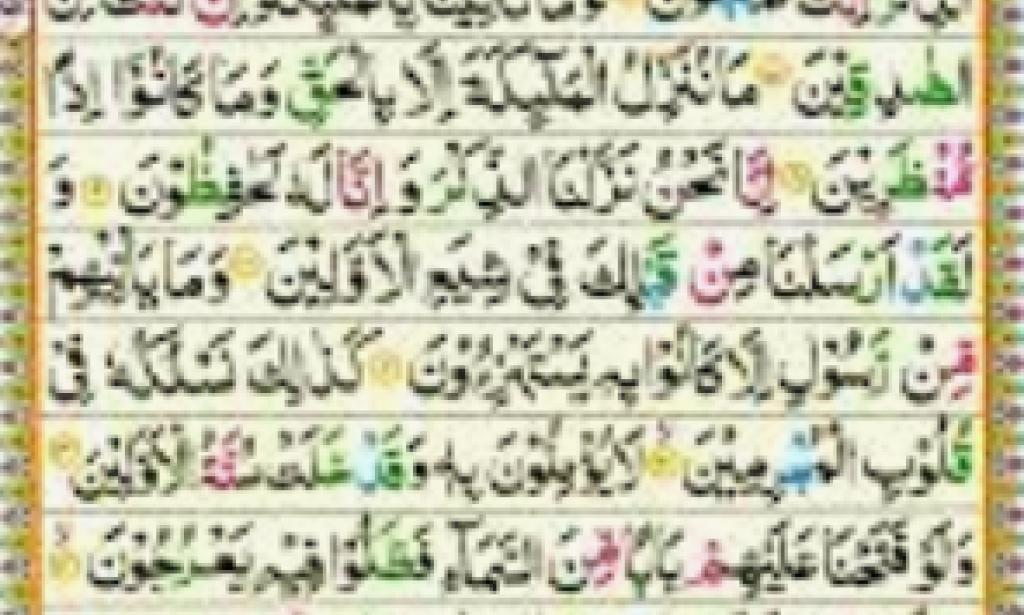 الصّٰدِقِيْنَ مَا نُنَزِّلُ الْمَلٰٓئِكَةَ اِلَّا بِالْحَقِّ وَمَا كَانُوْۤا اِذًا
مُّنْظَرِيْنَ اِنَّا نَحْنُ نَزَّلْنَا الذِّكْرَ وَ اِنَّا لَهٗ لَحٰفِظُوْنَ وَ
لَقَدْ اَرْسَلْنَا مِنْ قَبْلِكَ فِيْ شِيَعِ الْاَوَّلِيْنَ وَمَا يَاْتِيْهِمْ
مِّنْ رَّسُوْلٍ اِلَّا كَانُوْا بِهٖ يَسْتَهْزِءُوْنَ كَذٰلِكَ نَسْلُكُهٗ فِيْ
قُلُوْبِ الْمُجْرِمِيْنَ لَا يُؤْمِنُوْنَ بِهٖ وَقَدْ خَلَتْ سُنَّةُ الْاَوَّلِيْنَ
وَلَوْ فَتَحْنَا عَلَيْهِمْ بَابًا مِّنَ السَّمَآءِ فَظَلُّوْا فِيْهِ يَعْرُجُوْنَ